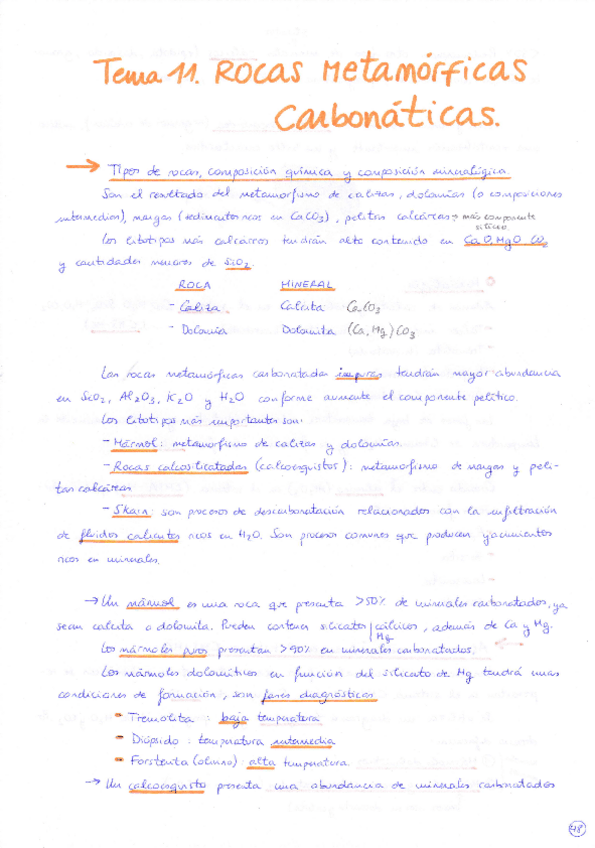 Tema 11. ROCAS METAMÓRFICAS
CARBONÁTICAS.
→ Tipos de rocas, composición química y composición mineralógica.
Son el resultado del metamorfismo de calizas, dolomías (o composiciones
intermedias), margas (sedimentos ricos en CaCO3), pelitas calcáreas → más componente
silíceo.
Los litotipos más calcáreos tendrán alto contenido en CaO, MgO, CO2
y cantidades menores de SiO2.
ROCA MINERAL
- Caliza Calcita CaCO3
- Dolomía Dolomita (Ca, Mg)CO3
Las rocas metamórficas carbonatadas impuras tendrán mayor abundancia
en SiO2, Al2O3, K2O y H2O conforme aumente el componente pelítico.
Los litotipos más importantes son:
- Mármol: metamorfismo de calizas y dolomías.
- Rocas calcosilicatadas (calcoesquistos): metamorfismo de margas y peli-
tas calcáreas
- Skarn: son procesos de descarbonatación relacionados con la infiltración
de fluidos calientes ricos en H2O. Son procesos comunes que producen yacimientos
ricos en minerales.
→ Un mármol es una roca que presenta >50% de minerales carbonatados, ya
sean calcita o dolomita. Pueden contener silicatos cálcicos, además de Ca y Mg.
Mg
Los mármoles puros presentan >90% en minerales carbonatados.
Los mármoles dolomíticos en función del silicato de Mg tendrá unas
condiciones de formación, son fases diagnósticas
- Tremolita : baja temperatura
- Diópsido : temperatura intermedia
- Forsterita (olivino) : alta temperatura.
→ Un calcoesquisto presenta una abundancia de minerales carbonatados
48